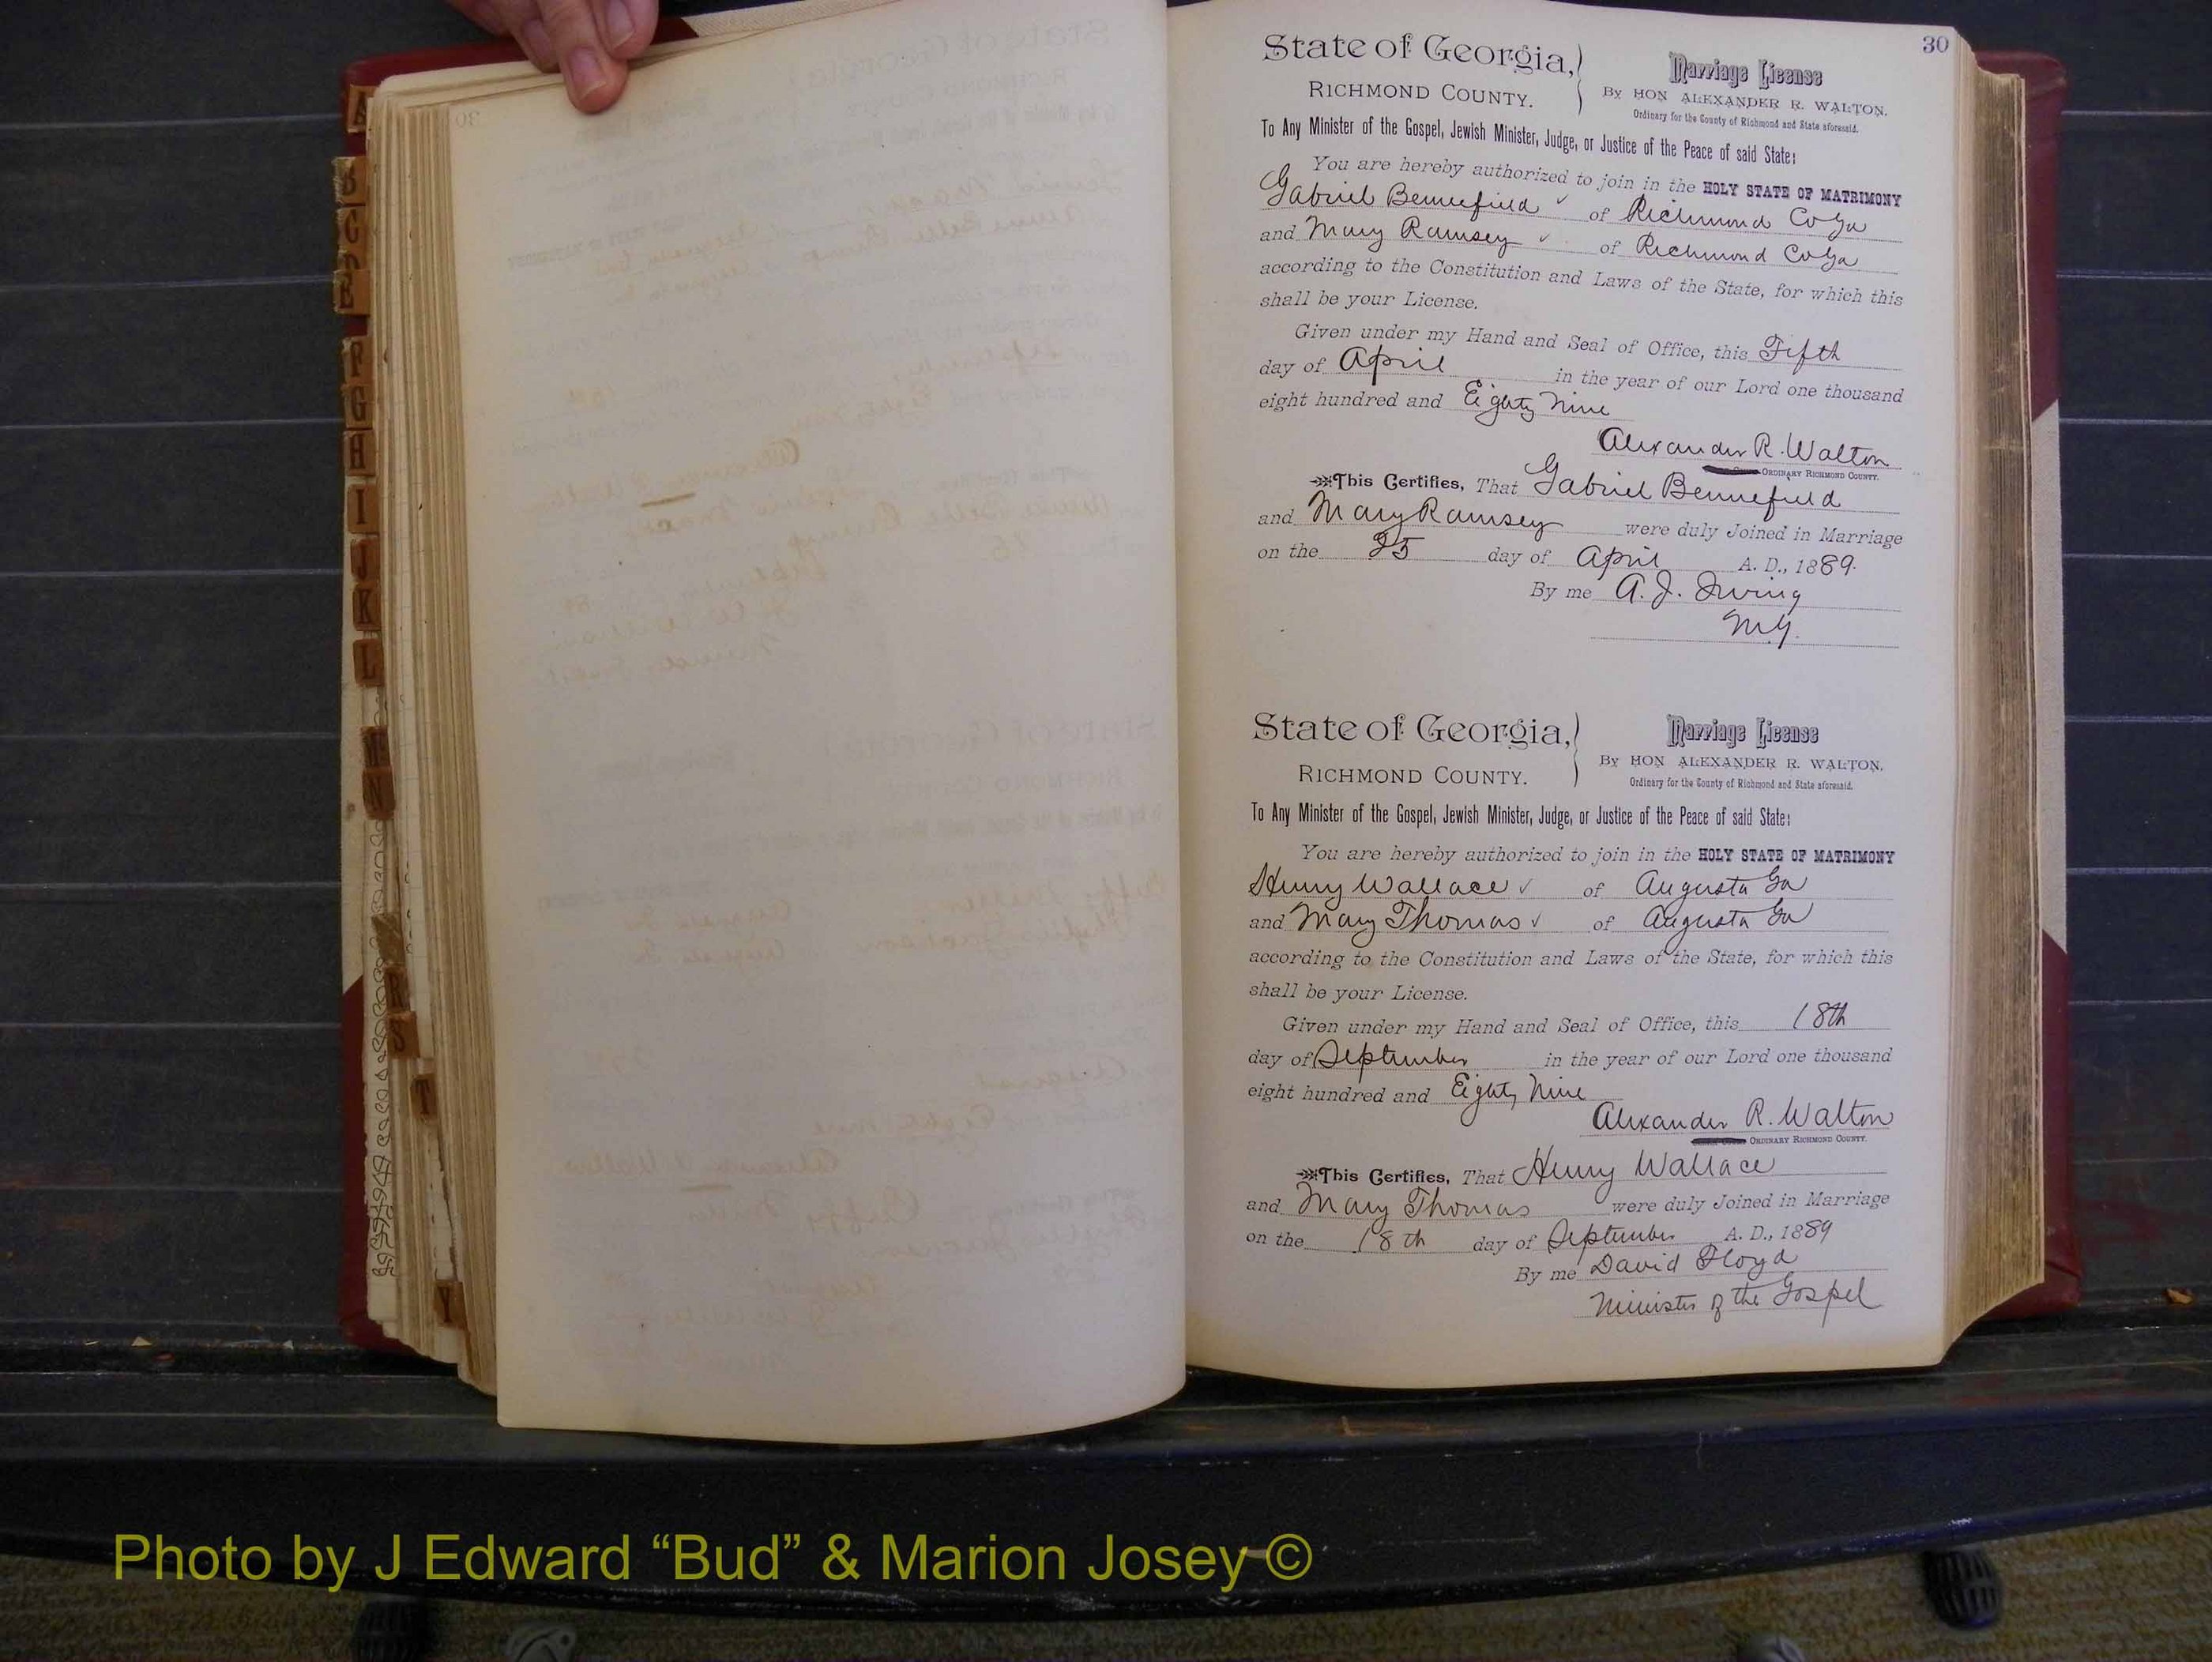 30
State of Georgia,
RICHMOND COUNTY.
Marriage License
By HON ALEXANDER R. WALTON,
Ordinary for the County of Richmond and State aforesaid.
To Any Minister of the Gospel, Jewish Minister, Judge, or Justice of the Peace of said State:
You are hereby authorized to join in the HOLY STATE OF MATRIMONY
Gabriel Bennefield ✓ of Richmond Co Ga
and Mary Ramsey ✓ of Richmond Co Ga
according to the Constitution and Laws of the State, for which this
shall be your License.
Given under my Hand and Seal of Office, this Fifth
day of April in the year of our Lord one thousand
eight hundred and Eighty Nine
Alexander R. Walton
ORDINARY RICHMOND COUNTY.
This Certifies, That Gabriel Bennefield
and Mary Ramsey were duly Joined in Marriage
on the 25 day of April A. D., 1889.
By me A. J. Irving
M.G.
State of Georgia,
RICHMOND COUNTY.
Marriage License
By HON ALEXANDER R. WALTON,
Ordinary for the County of Richmond and State aforesaid.
To Any Minister of the Gospel, Jewish Minister, Judge, or Justice of the Peace of said State:
You are hereby authorized to join in the HOLY STATE OF MATRIMONY
Henry Wallace ✓ of Augusta Ga
and Mary Thomas ✓ of Augusta Ga
according to the Constitution and Laws of the State, for which this
shall be your License.
Given under my Hand and Seal of Office, this 18th
day of September in the year of our Lord one thousand
eight hundred and Eighty Nine
Alexander R. Walton
ORDINARY RICHMOND COUNTY.
This Certifies, That Henry Wallace
and Mary Thomas were duly Joined in Marriage
on the 18th day of September A. D., 1889
By me David Floyd
Minister of the Gospel
A
B
C
F
G
H
I
J
K
L
N
R
S
T
Y
Photo by J Edward “Bud” & Marion Josey ©